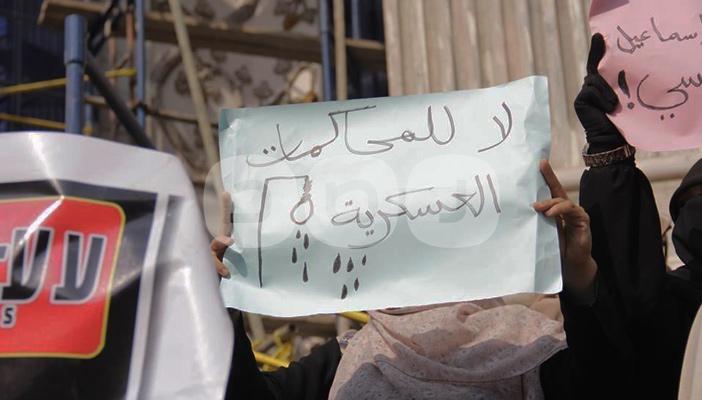 لا للمحاكمات
العسكرية
إسماعيل
لا لا
S